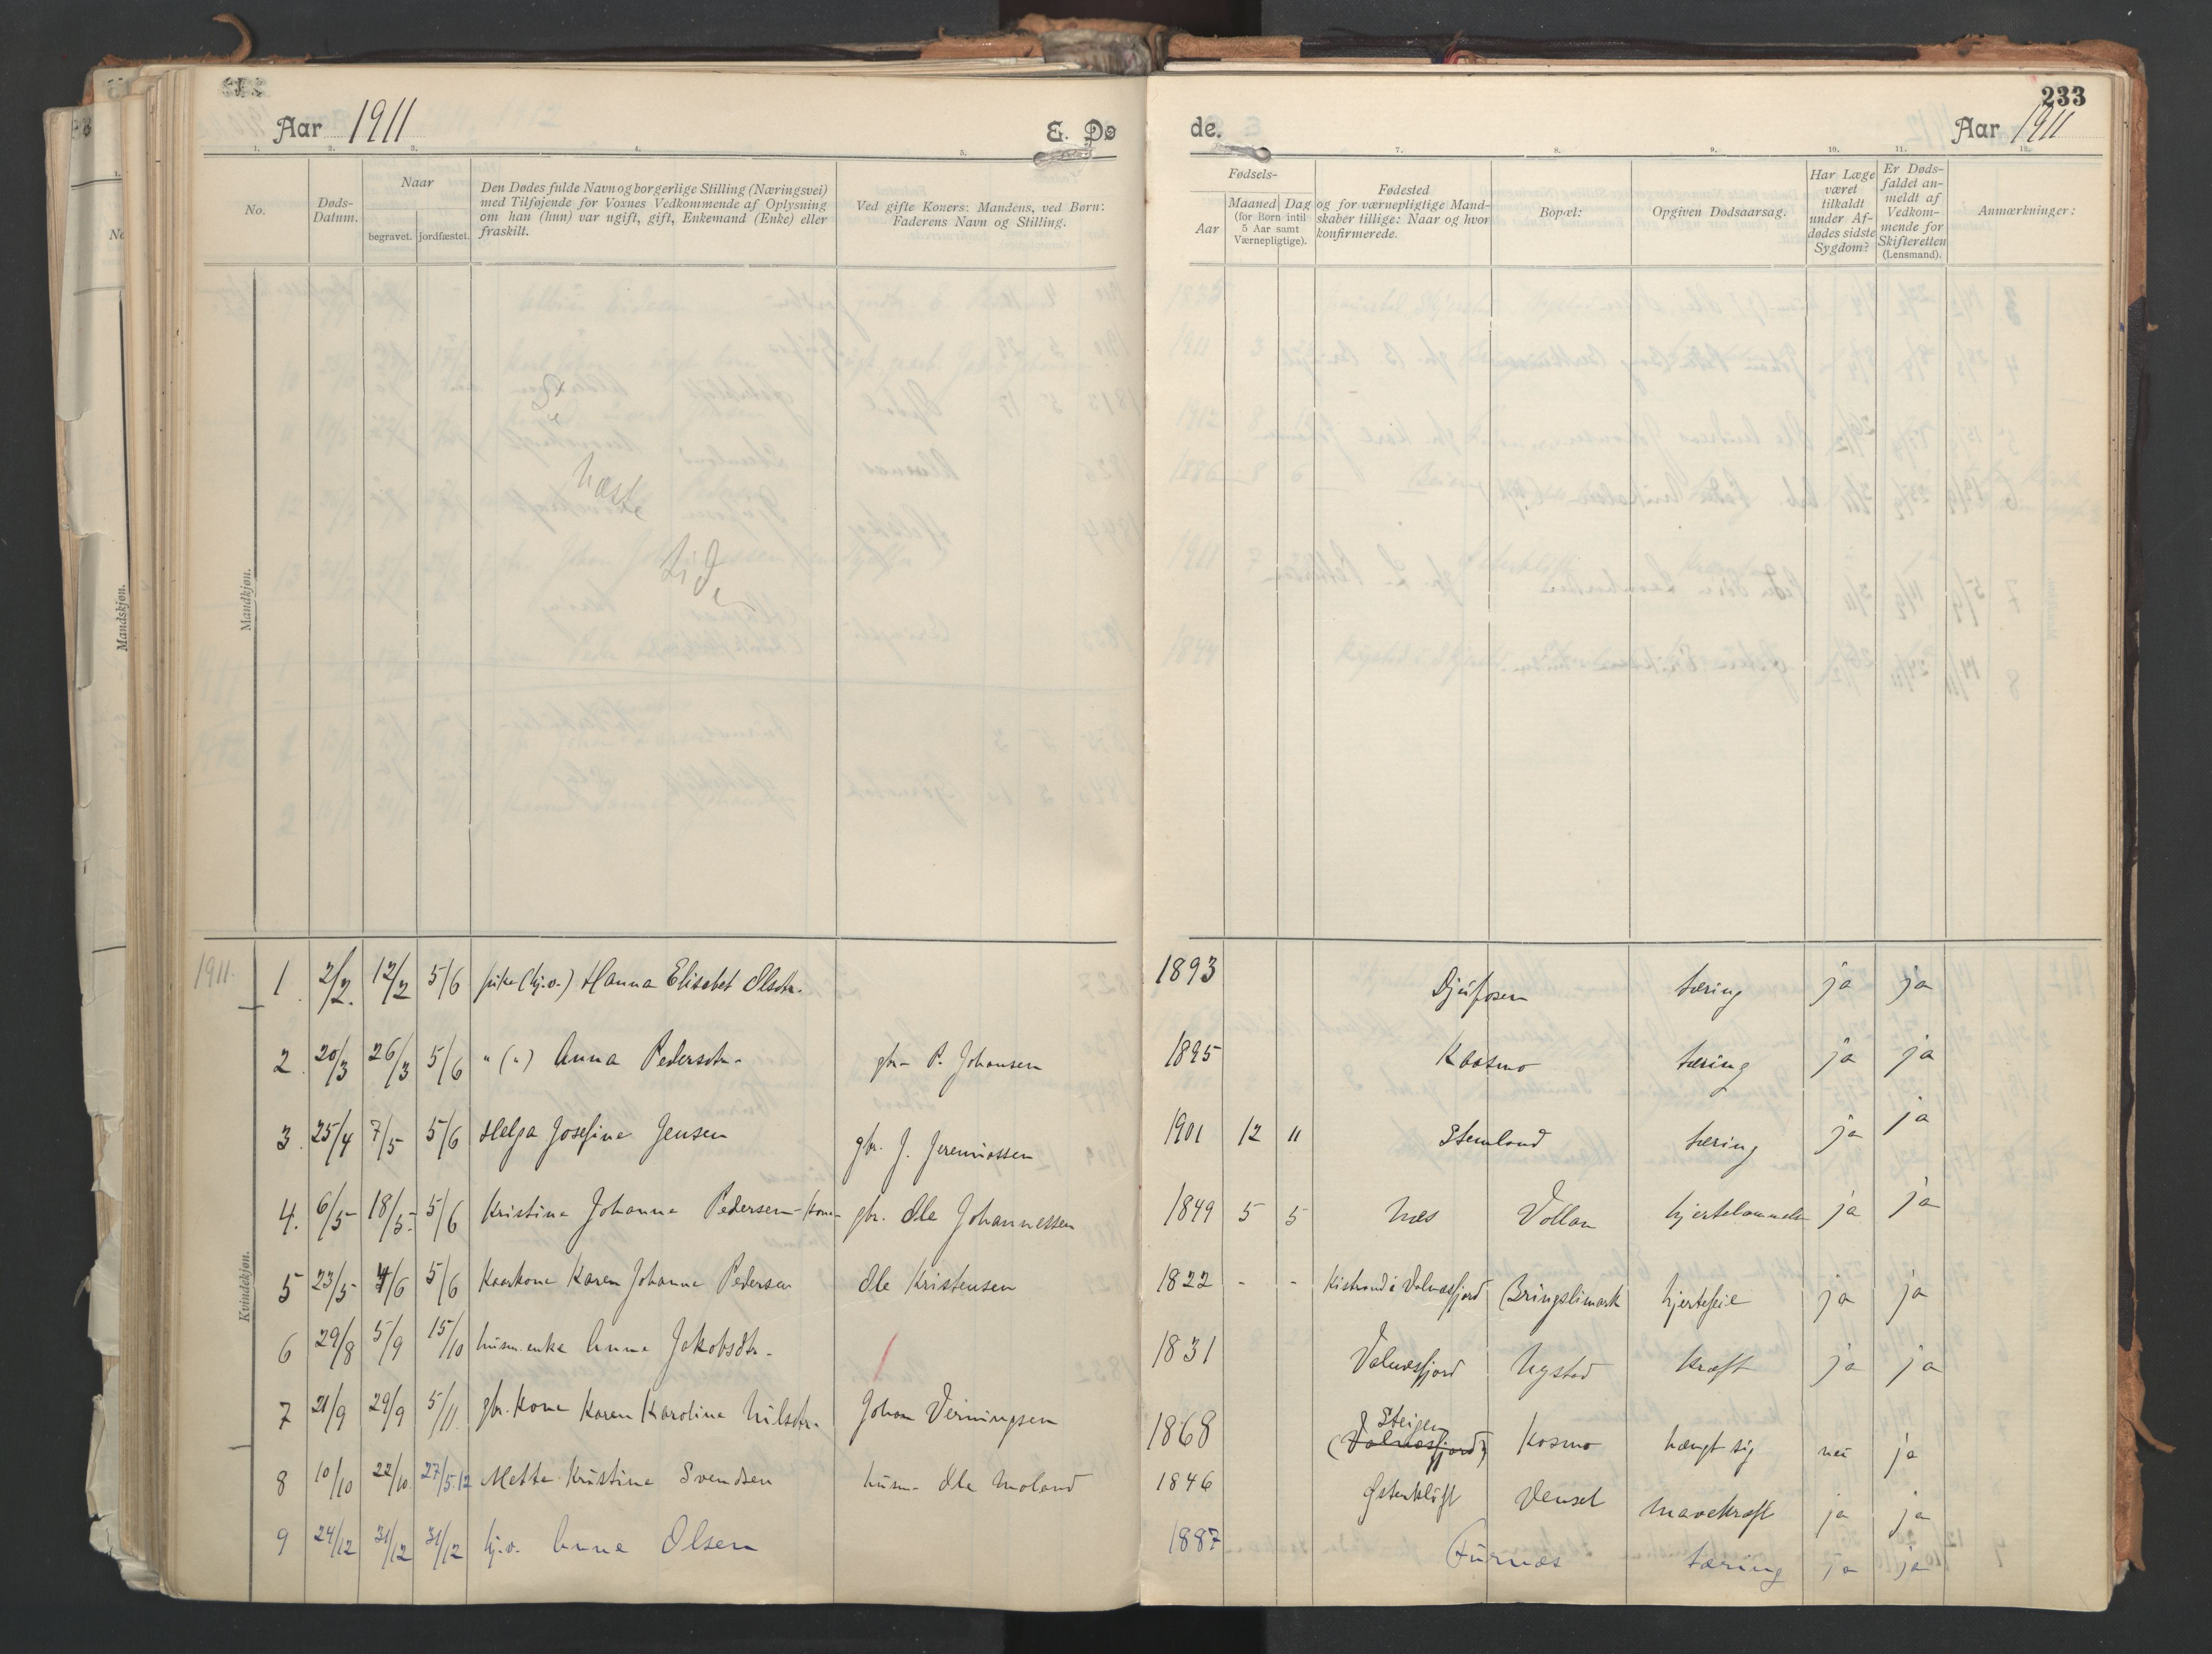 233
Aar 1911 E. Dø
de. Aar 1911
1. 2. 3. 4. 5. 7. 8. 9. 10. 11. 12.
No.
Døds-
Datum.
Naar
begravet. jordfæstet.
Den Dødes fulde Navn og borgerlige Stilling (Næringsvei)
med Tilføjende for Voxnes Vedkommende af Oplysning
om han (hun) var ugift, gift, Enkemand (Enke) eller
fraskilt.
Ved gifte Koners: Mandens, ved Børn:
Faderens Navn og Stilling.
Fødsels-
Aar
Maaned Dag
(for Børn intil
5 Aar samt
Værnepligtige).
Fødested
og for værnepligtige Mand-
skaber tillige: Naar og hvor
konfirmerede.
Bopæl:
Opgiven Dødsaarsag.
Har Læge
været
tilkaldt
under Af-
dødes sidste
Sygdom?
Er Døds-
faldet an-
meldt af
Vedkom-
mende for
Skifteretten
(Lensmand).
Anmærkninger:
Mandkjøn.
Mandskjøn.
Se
næste
Side
Kvindekjøn.
1911.
1 2/2. 12/2 5/6 pike (hj.v.) Hanna Elisabet Olsdtr. 1893 Djupfosen tæring ja ja
2 20/3 26/3 5/6 " (") Anna Pedersdtr. gbr. P. Johansen 1895 Kosmo tæring ja ja
3. 25/4 7/5 5/6 Helga Josefine Jensen gbr. J. Jeremiassen 1901 12 11 Stemland tæring ja ja
4. 6/5 18/5 5/6 Kristine Johanne Pedersen - kone gbr. Ole Johannessen 1849 5 5 Næs Vollan hjertelammelse ja ja
5 23/5 4/6 5/6 Kaarkone Karen Johanne Pedersen Ole Kristensen 1822 - - Kistrand i Valnæsfjord Bringslimark hjertefeil ja ja
6 29/8 5/9 15/10 husm. enke Anne Jakobsdtr. 1831 Valnæsfjord Nystad kræft ja ja
7 21/9 29/9 5/11 gbr. kone Karen Karoline Nilsdtr. Johan Verningsen 1868 Steigen (Valnæsfjord) Kosmo hængt sig nei ja
8 10/10 22/10. 27/5.12 Mette Kristine Svendsen husm. Ole Moland 1846 Østerkløft Venset mavekræft ja ja
9 24/12 31/12 31/12 hj.v. Anne Olsen 1887 Furnæs tæring ja ja